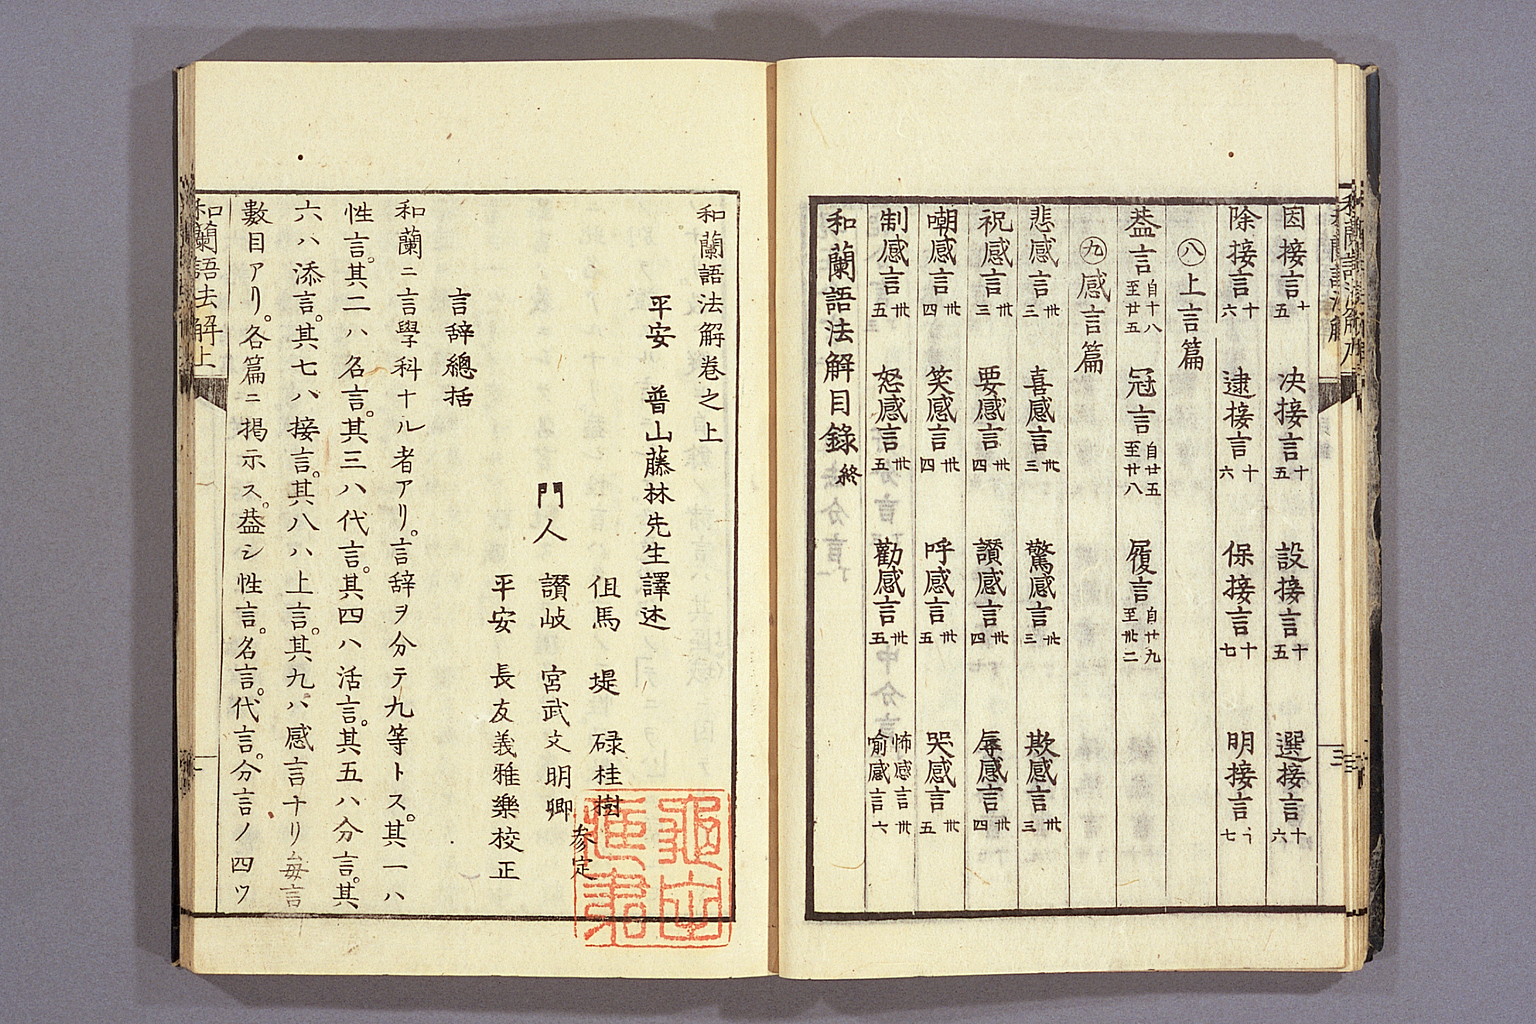 因接言 十五 决接言 十五 設接言 十五 選接言 十六
除接言 十六 逮接言 十六 保接言 十七 明接言 十七
㊇上言篇
葢言 自十八至廿五 冠言 自廿五至廿八 履言 自廿九至丗二
㊈感言篇
悲感言 丗三 喜感言 丗三 驚感言 丗三 欺感言 丗三
祝感言 丗三 要感言 丗四 讃感言 丗四 辱感言 丗四
嘲感言 丗四 笑感言 丗四 呼感言 丗五 哭感言 丗五
制感言 丗五 怒感言 丗五 勸感言 丗五 怖感言 喻感言 丗六
和蘭語法解目錄終
和蘭語法解卷之上
平安 普山藤林先生譯述
門人
伹馬 堤 碌桂樹
讃岐 宮武文明卿 參定
平安 長友義雅樂校正
言辞總括
和蘭ニ言學科ナル者アリ。言辞ヲ分テ九等トス。其一ハ
性言。其二ハ名言。其三ハ代言。其四ハ活言。其五ハ分言。其
六ハ添言。其七ハ接言。其八ハ上言。其九ハ感言ナリ毎言
數目アリ。各篇ニ揭示ス。葢シ性言。名言。代言。分言ノ四ツ
和蘭語法解上